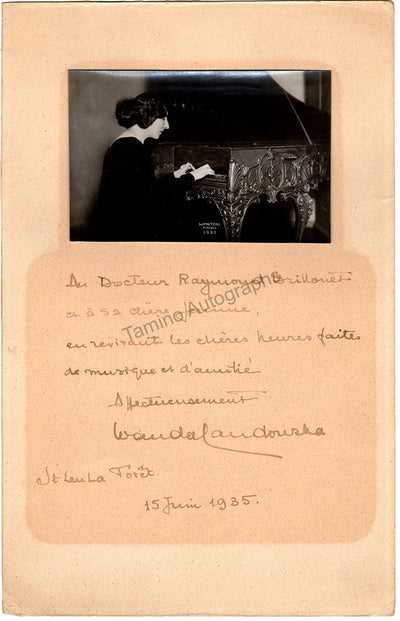 Au Docteur Raymond Brillouët
et à sa chère femme,
Tamino/Autographs
en revivant les chères heures faites
de musique et d'amitié
Affectueusement
Wanda Landowska
St Leu La Forêt
15 Juin 1935.